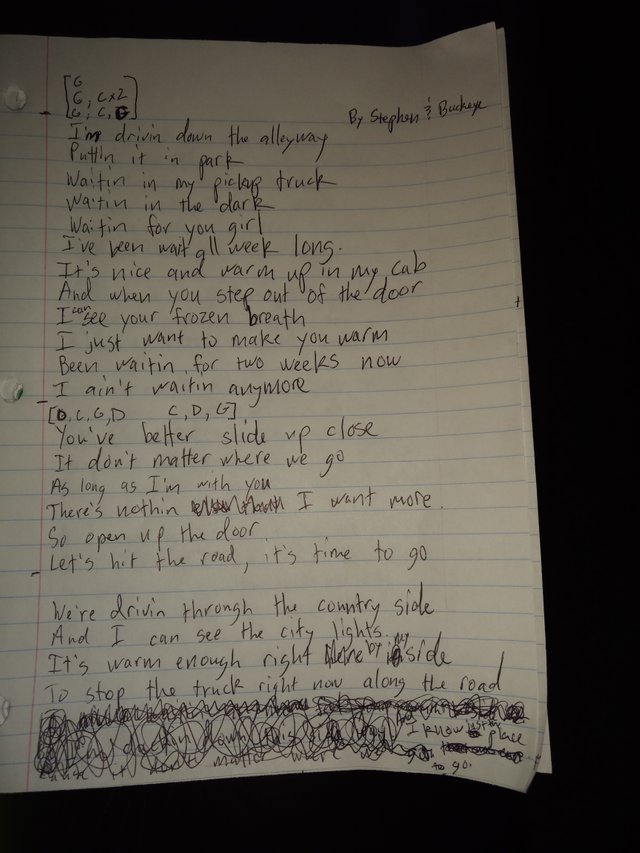 [G
G, C x2
G, C, G]
By Stephen & Buckeye
I'm drivin down the alleyway
Puttin it in park
Waitin in my pickup truck
Waitin in the dark
Waitin for you girl
I've been wait all week long.
It's nice and warm up in my cab
And when you step out of the door
I can see your frozen breath
I just want to make you warm
Been waitin for two weeks now
I ain't waitin anymore
[D, C, G, D C, D, G]
You've better slide up close
It don't matter where we go
As long as I'm with you
There's nothin I want more.
So open up the door
Let's hit the road, it's time to go
We're drivin through the country side
And I can see the city lights.
It's warm enough right by my side
To stop the truck right now along the road
I know place
to go.